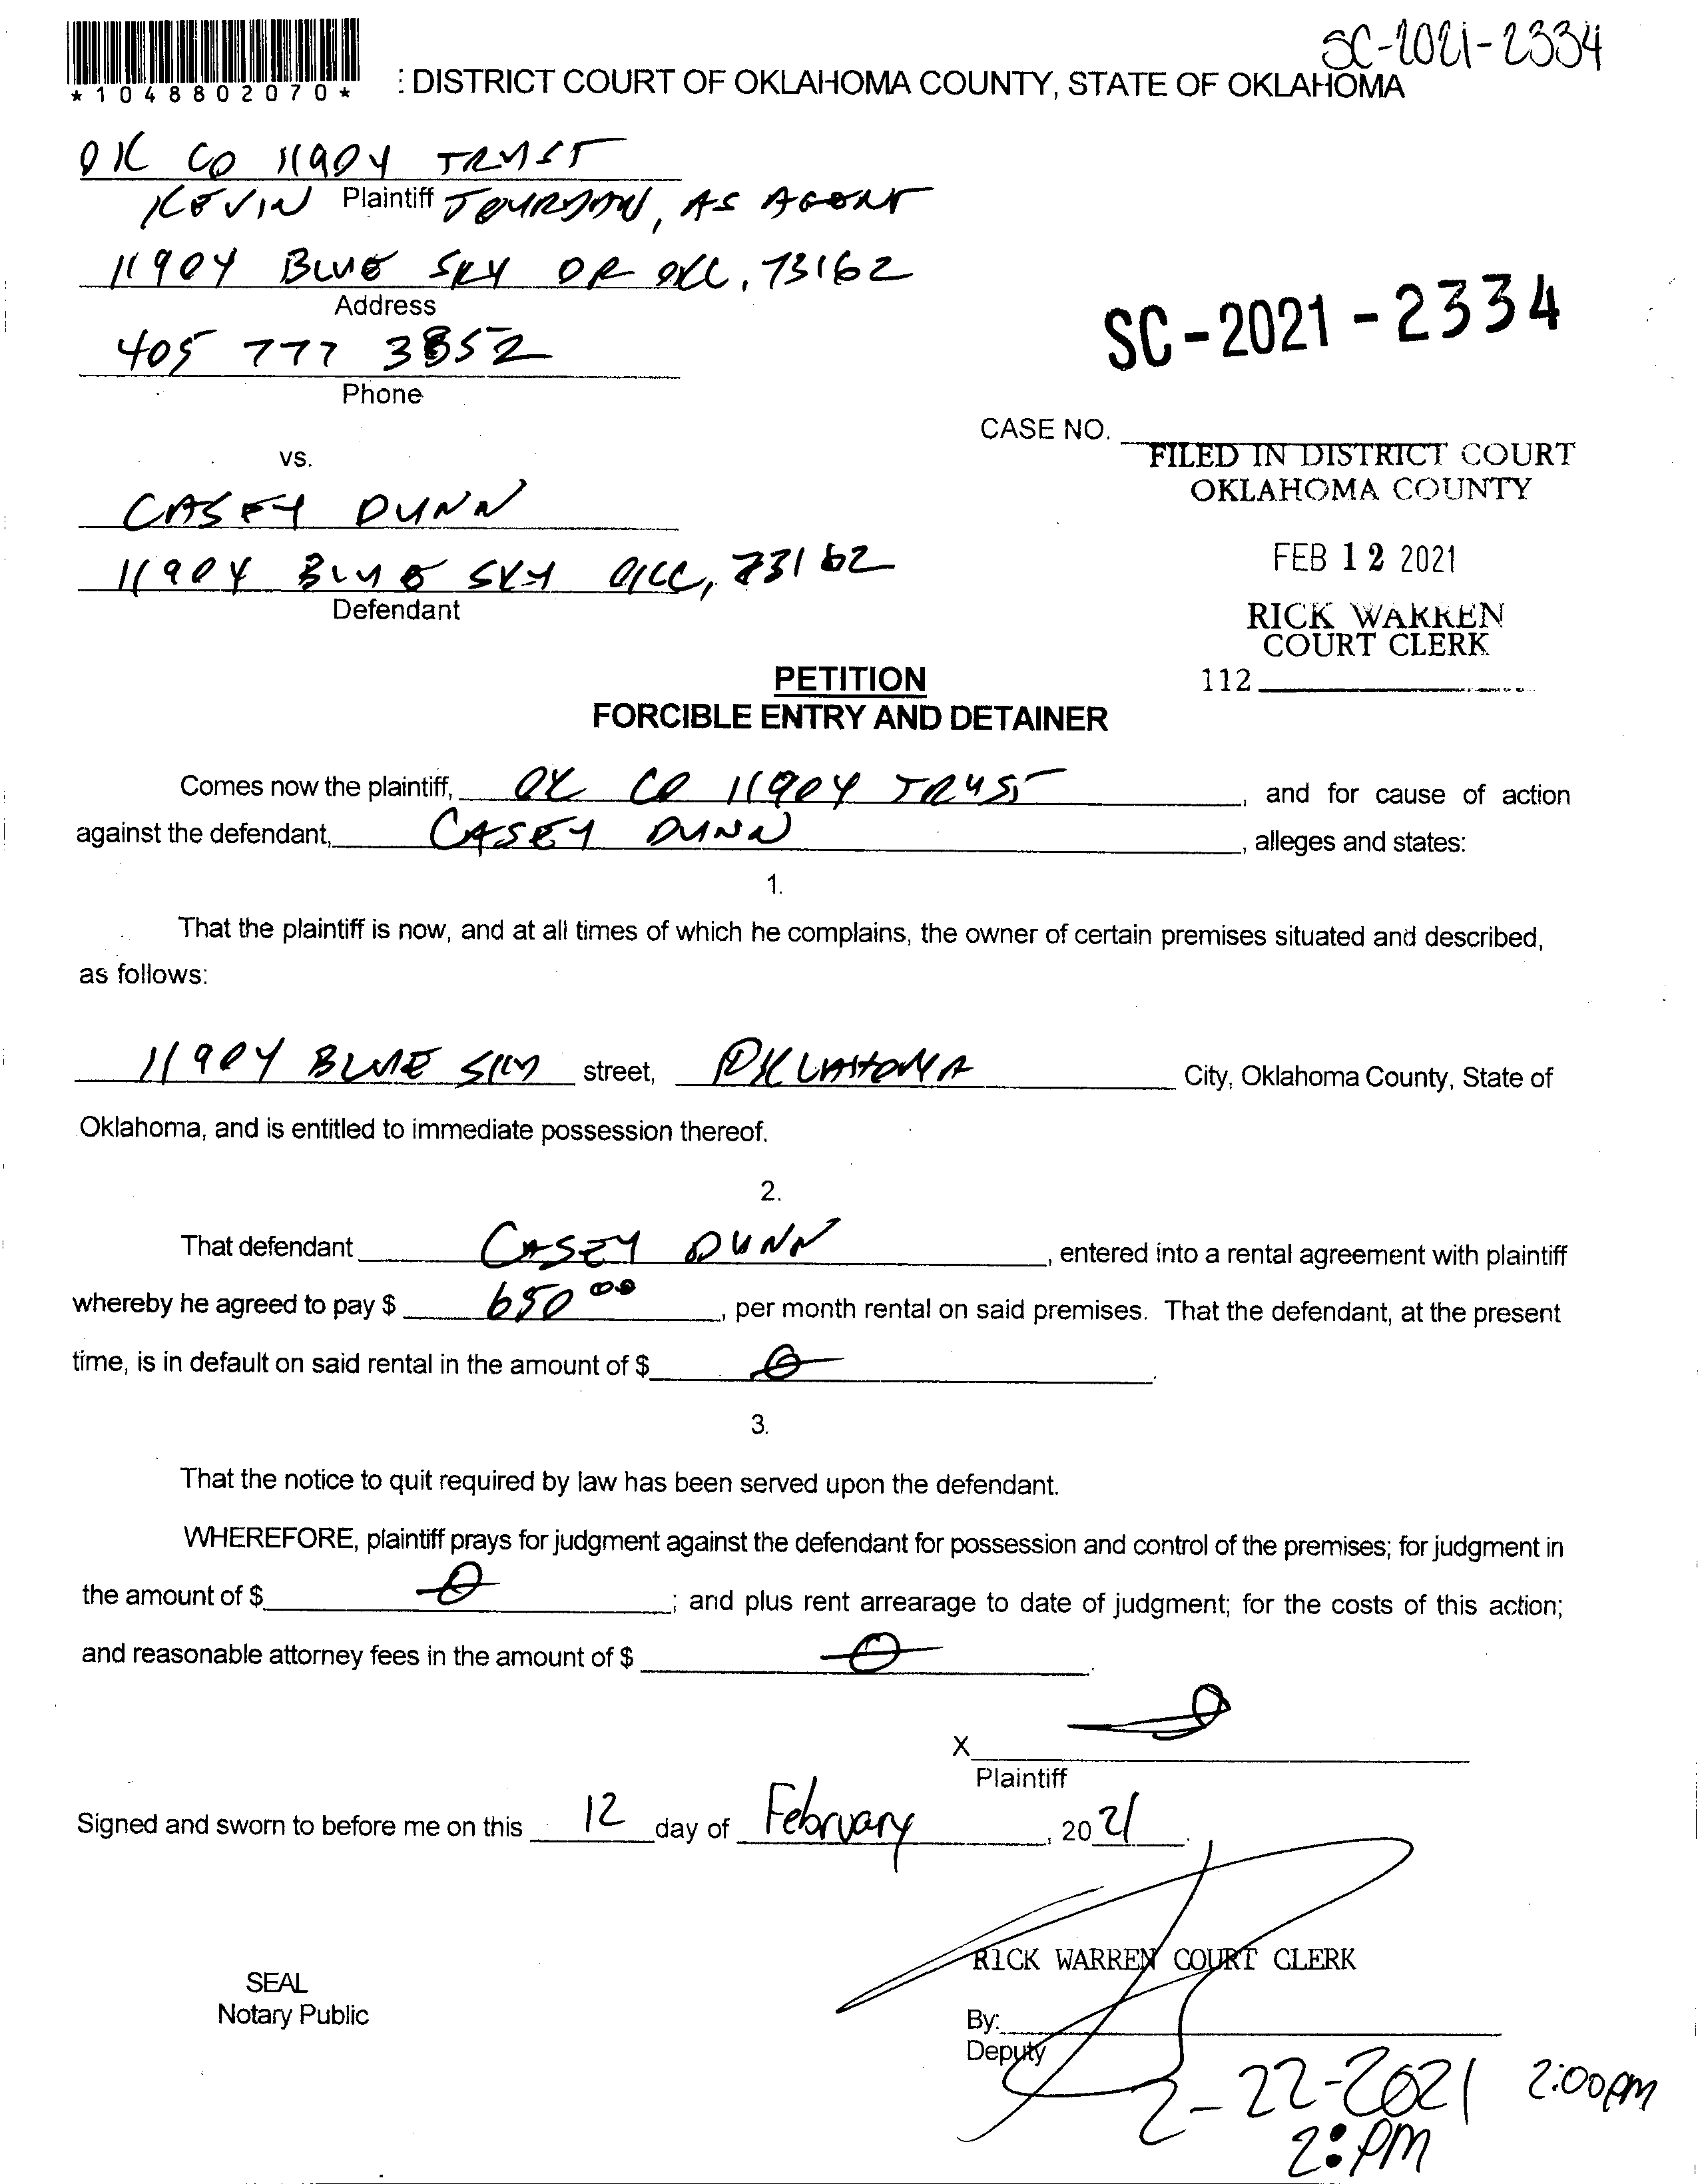 SC-2021-2334
*1048802070*
: DISTRICT COURT OF OKLAHOMA COUNTY, STATE OF OKLAHOMA
OK CO 11904 TRUST
KEVIN Plaintiff JOURDAN, AS AGENT
11904 BLUE SKY DR OKC, 73162
Address
405 777 3852
Phone
SC-2021-2334
CASE NO.
vs.
FILED IN DISTRICT COURT
OKLAHOMA COUNTY
CASEY DUNN
FEB 12 2021
11904 BLUE SKY OKC, 73162
Defendant
RICK WARREN
COURT CLERK
112
PETITION
FORCIBLE ENTRY AND DETAINER
Comes now the plaintiff, OK CO 11904 TRUST, and for cause of action
against the defendant, CASEY DUNN, alleges and states:
1.
That the plaintiff is now, and at all times of which he complains, the owner of certain premises situated and described,
as follows:
11904 BLUE SKY street, OKLAHOMA City, Oklahoma County, State of
Oklahoma, and is entitled to immediate possession thereof.
2.
That defendant CASEY DUNN, entered into a rental agreement with plaintiff
whereby he agreed to pay $ 650 00, per month rental on said premises. That the defendant, at the present
time, is in default on said rental in the amount of $ 0.
3.
That the notice to quit required by law has been served upon the defendant.
WHEREFORE, plaintiff prays for judgment against the defendant for possession and control of the premises; for judgment in
the amount of $ 0; and plus rent arrearage to date of judgment; for the costs of this action;
and reasonable attorney fees in the amount of $ 0.
X
Plaintiff
Signed and sworn to before me on this 12 day of February, 2021.
RICK WARREN COURT CLERK
SEAL
Notary Public
By:
Deputy
2-22-2021 2:00pm
2:PM